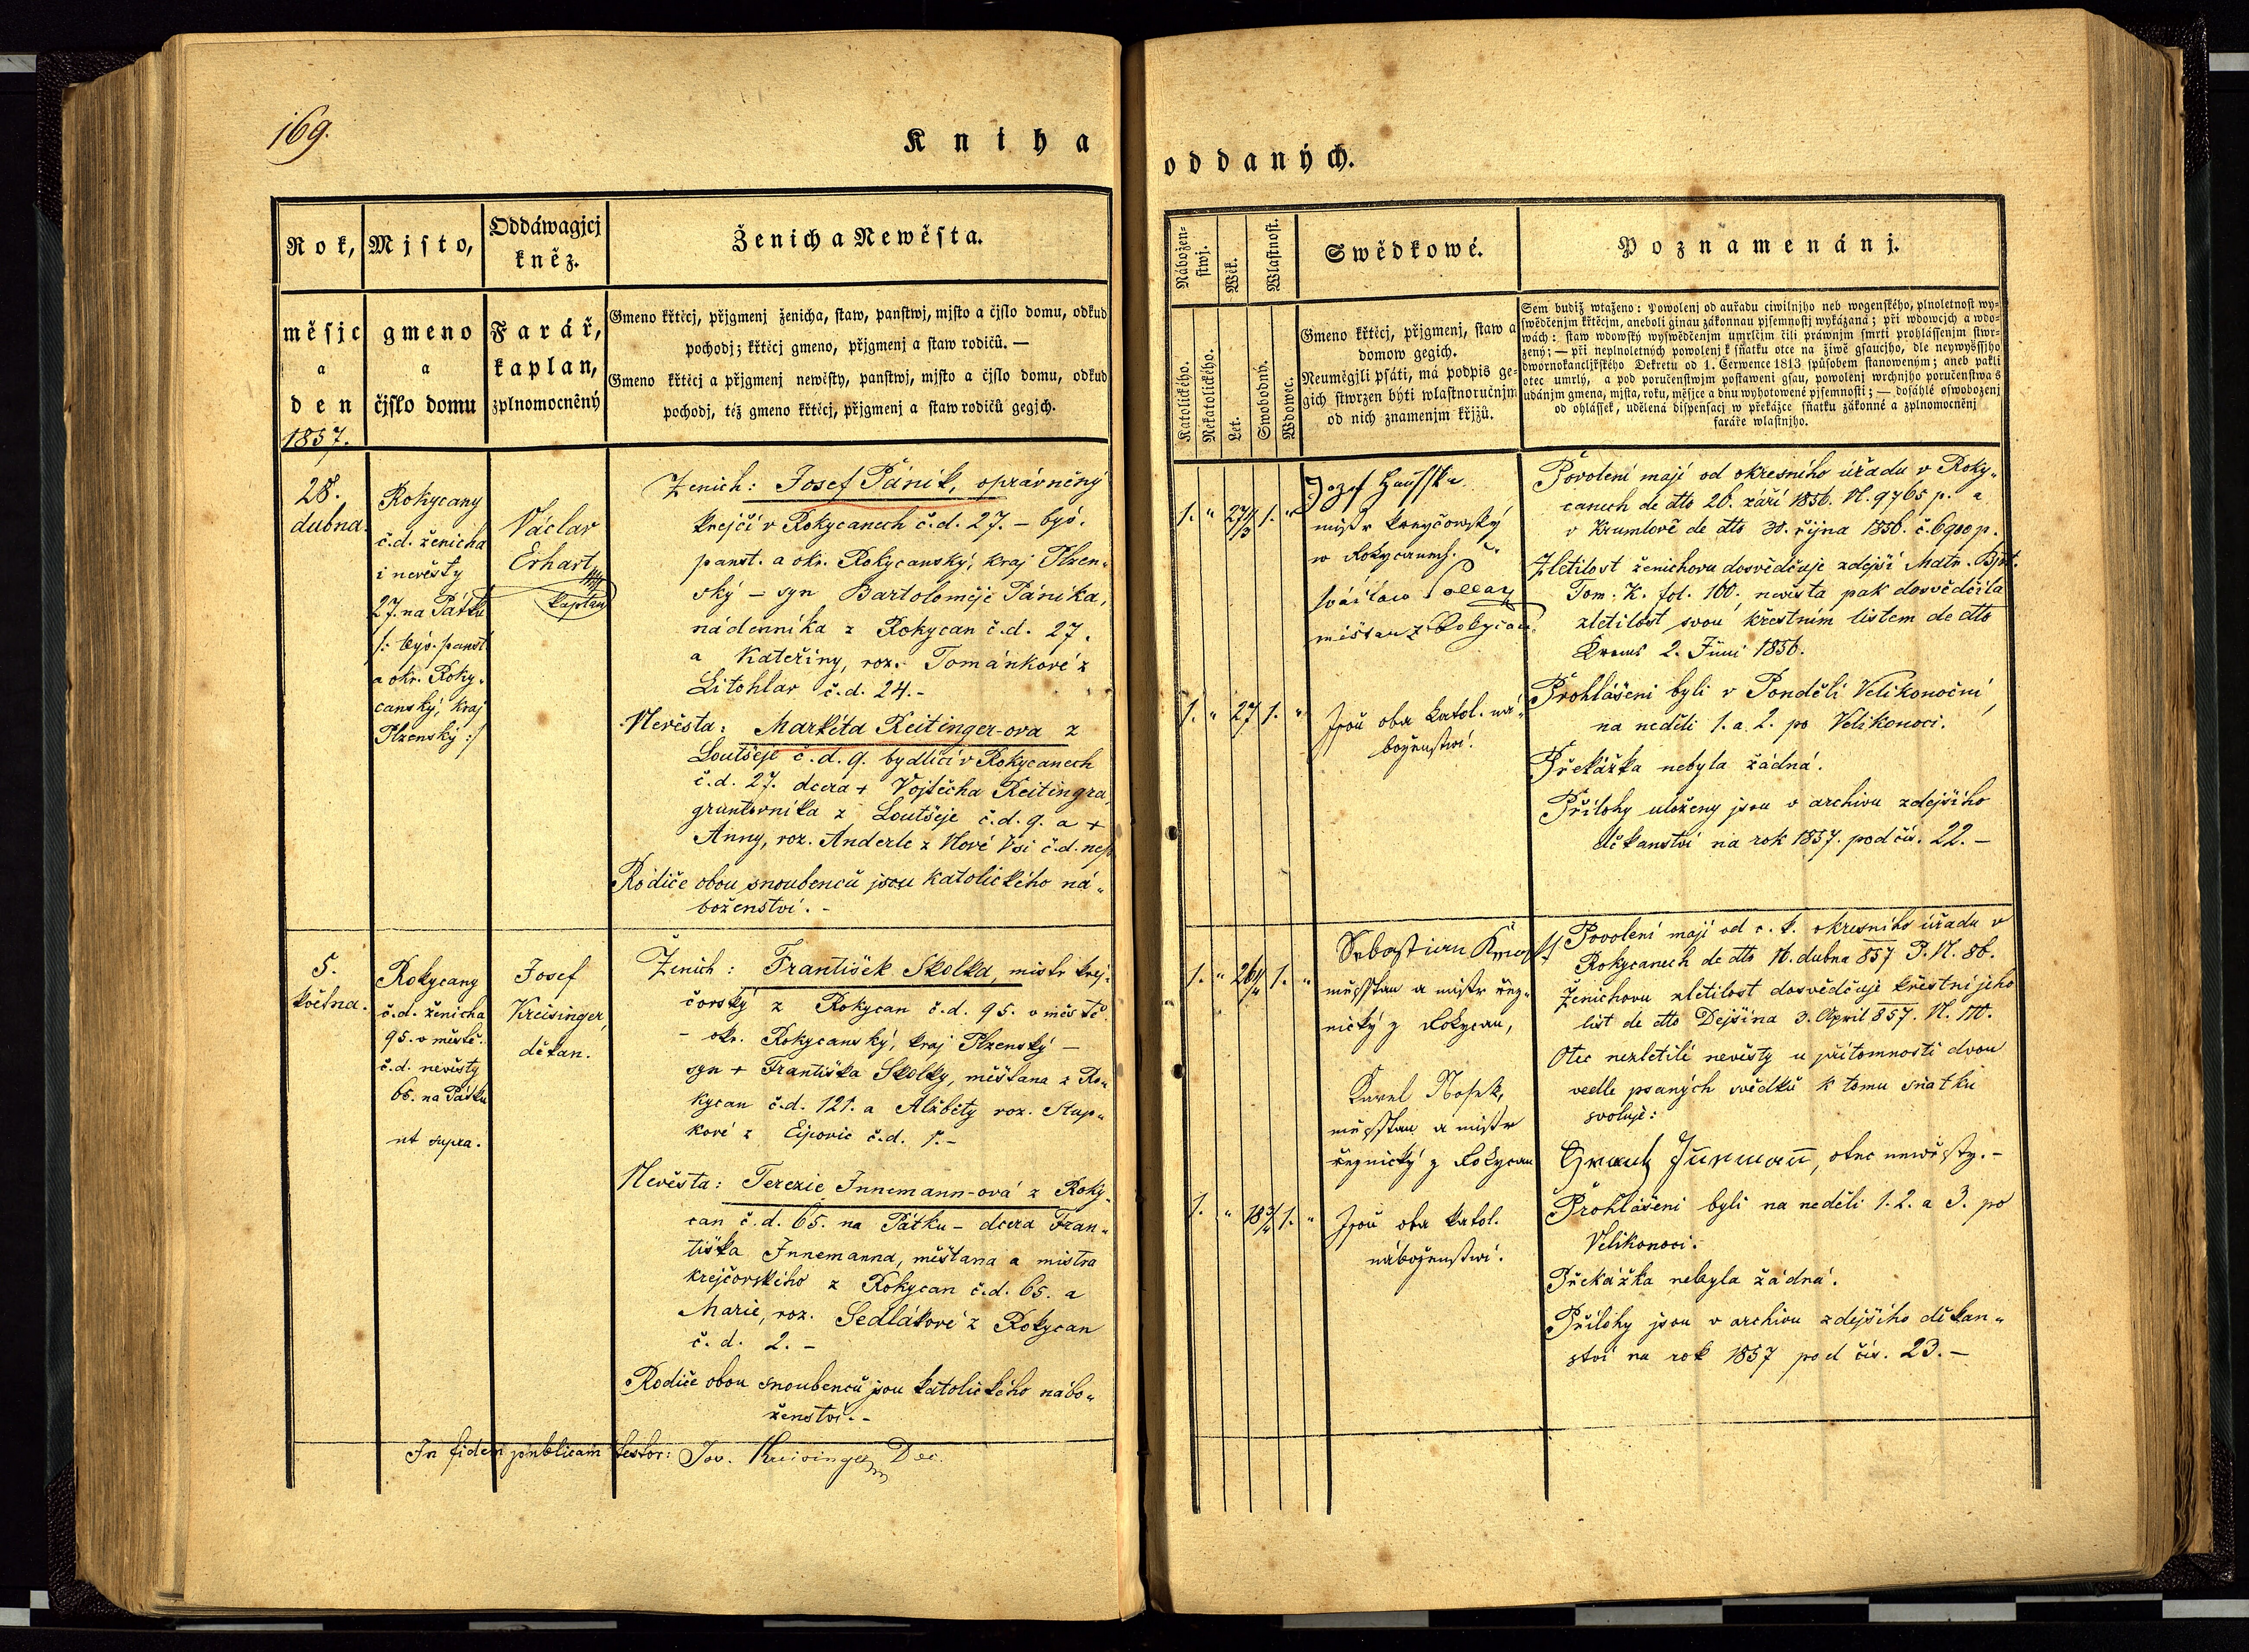 169.
Kniha
oddaných.
Rok,
měsjc
a
den
1857.
Mjsto,
gmeno
a
čjslo domu
Oddáwagjcj
kněz.
Farář,
kaplan,
zplnomocněný
Ženich a Newěsta.
Gmeno křtěcj, přjgmenj ženicha, staw, panstwj, mjsto a čjslo domu, odkud
pochodj; křtěcj gmeno, přjgmenj a staw rodičů. —
Gmeno křtěcj a přjgmenj newěsty, panstwj, mjsto a čjslo domu, odkud
pochodj, též gmeno křtěcj, přjgmenj a staw rodičů gegjch.
Nábožen-
stwj.
Wěk.
Wlastnost.
Katolického.
Nekatolického.
Let.
Swobodný.
Wdowec.
Swědkowé.
Gmeno křtěcj, přjgmenj, staw a
domow gegich.
Neumělgili psáti, má podpis ge-
gich stwrzen býti wlastnoručnjm
od nich znamenjm křjžů.
Poznamenánj.
Sem budiž wtaženo: Powolenj od auřadu ciwilnjho neb wogenského, plnoletnost wy-
swědčenjm křtěcjm, aneboli ginau zákonnau pjsemnostj wykázaná; při wdowcjch a wdo-
wách: staw wdowský wyswědčenjm umrlčjm čili práwnjm smrti prohlássenjm stwr-
zený; — při neplnoletných powolenj k sňatku otce na žiwě gsaucjho, dle neywyššjho
dwornokancljřského Dekretu od 1. Července 1813 způsobem stanoweným; aneb pakli
otec umrlý, a pod poručenstwjm postaweni gsau, powolenj wrchnjho poručenstwa s
udánjm gmena, mjsta, roku, měsjce a dnu wyhotowené pjsemnosti; — dosáhlé oswobozenj
od ohlášsek, udělená dispensacj w překážce sňatku zákonné a zplnomocněnj
faráře wlastnjho.
28.
dubna.
Rokycany
č.d. ženicha
i nevěsty
27. na Pátku
/: býv. panst.
a okr. Roky-
canský, kraj
Plzenský :/
Václav
Erhart
kaplan
Ženich: Josef Páník, oprávněný
krejčí v Rokycanech č.d. 27. – býv.
panst. a okr. Rokycanský, kraj Plzen-
ský – syn Bartoloměje Páníka,
nádenníka z Rokycan č.d. 27.
a Kateřiny, roz. Tománkové z
Litohlav č.d. 24. –
Nevěsta: Markéta Reitinger-ova z
Loutšeje č.d. 9. bydlící v Rokycanech
č.d. 27. dcera + Vojtěcha Reitingra,
gruntovníka z Loutšeje č.d. 9. a +
Anny, roz. Anderle z Nové Vsi č.d. nep.
Rodiče obou snoubenců jsou katolického ná-
boženství. –
1. " 1. "
1. " 27 1. "
Jozef
mistr krejčowský
w Rokycanech.
měšťan z Rokycan.
Jsou oba katol. ná-
boženstwí.
Povolení mají od okresního úřadu v Roky-
canech de dto 20. září 1856. N. 9765 p. a
v Krumlově de dto 30. října 1856. č. 6900 p.
Zletilost ženichovu dosvědčuje zdejší Matr. Bpt.
Tom. K. fol. 160., nevěsta pak dosvědčila
zletilost svou křestním listem de dto
2. Juni 1856.
Prohlášeni byli v Pondělí Velikonoční,
na neděli 1. a 2. po Velikonoci.
Překážka nebyla žádná.
Přílohy uloženy jsou v archivu zdejšího
děkanství na rok 1857. pod čís. 22. –
5.
května.
Rokycany
č.d. ženicha
95. v městě.
č.d. nevěsty
65. na Pátku
ut supra.
Josef
Kreisinger,
děkan.
Ženich: František Skolka, mistr krej-
čovský z Rokycan č.d. 95. v městě
– okr. Rokycanský, kraj Plzenský –
syn + Františka Skolky, měšťana z Ro-
kycan č.d. 121. a Alžběty roz. Stup-
kové z Ejpovic č.d. 1. –
Nevěsta: Terezie Innemann-ová z Roky-
can č.d. 65. na Pátku – dcera Fran-
tiška Innemanna, měšťana a mistra
krejčovského z Rokycan č.d. 65. a
Marie, roz. Sedlákové z Rokycan
č.d. 2. –
Rodiče obou snoubenců jsou katolického nábo-
ženství. –
1. " 1. "
1. " 1. "
Sebastian
měšťan a mistr řez-
nický z Rokycan,
Karel Nosek,
měšťan a mistr
řeznický z Rokycan
Jsou oba katol.
náboženstwí.
Povolení mají od c. k. okresního úřadu v
Rokycanech de dto 16. dubna 857 P. N. 86.
Ženichovu zletilost dosvědčuje křestní jeho
list de dto Dejšina 3. April 857. N.
Otec nezletilé nevěsty u přítomnosti dvou
vedle psaných svědků k tomu sňatku
svoluje:
otec newěsty. –
Prohlášeni byli na neděli 1. 2. a 3. po
Velikonoci.
Překážka nebyla žádná.
Přílohy jsou v archivu zdejšího děkan-
ství na rok 1857 pod čís. 23. –
In fidem publicam testor: Jos. Kreisinger Dec.